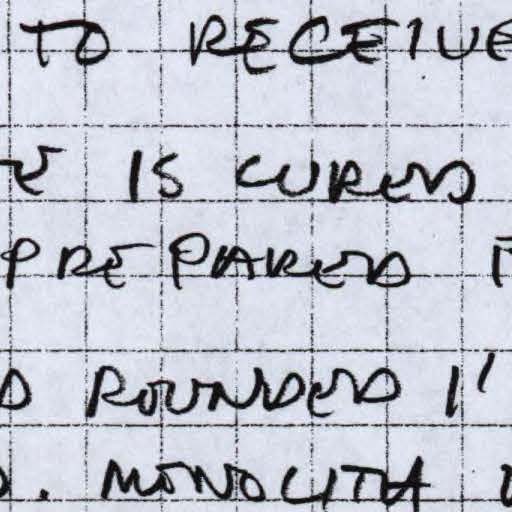 TO RECEIVE
IS CURED
PREPARED
ROUNDED 1'
. MONOLITH